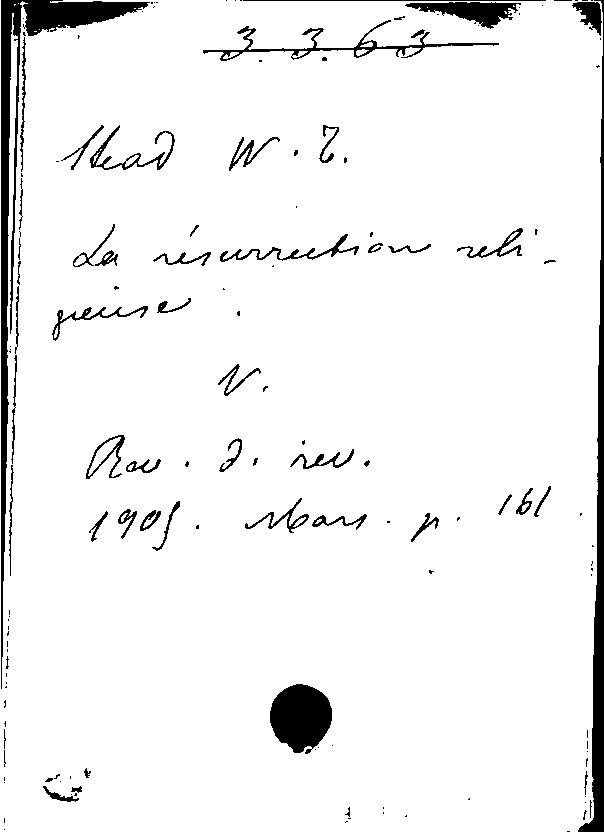 3. 3. 6 3
Stead W. T.
La résurrection reli-
gieuse.
V.
Rev. d. rev.
1905. Mars. p. 161.